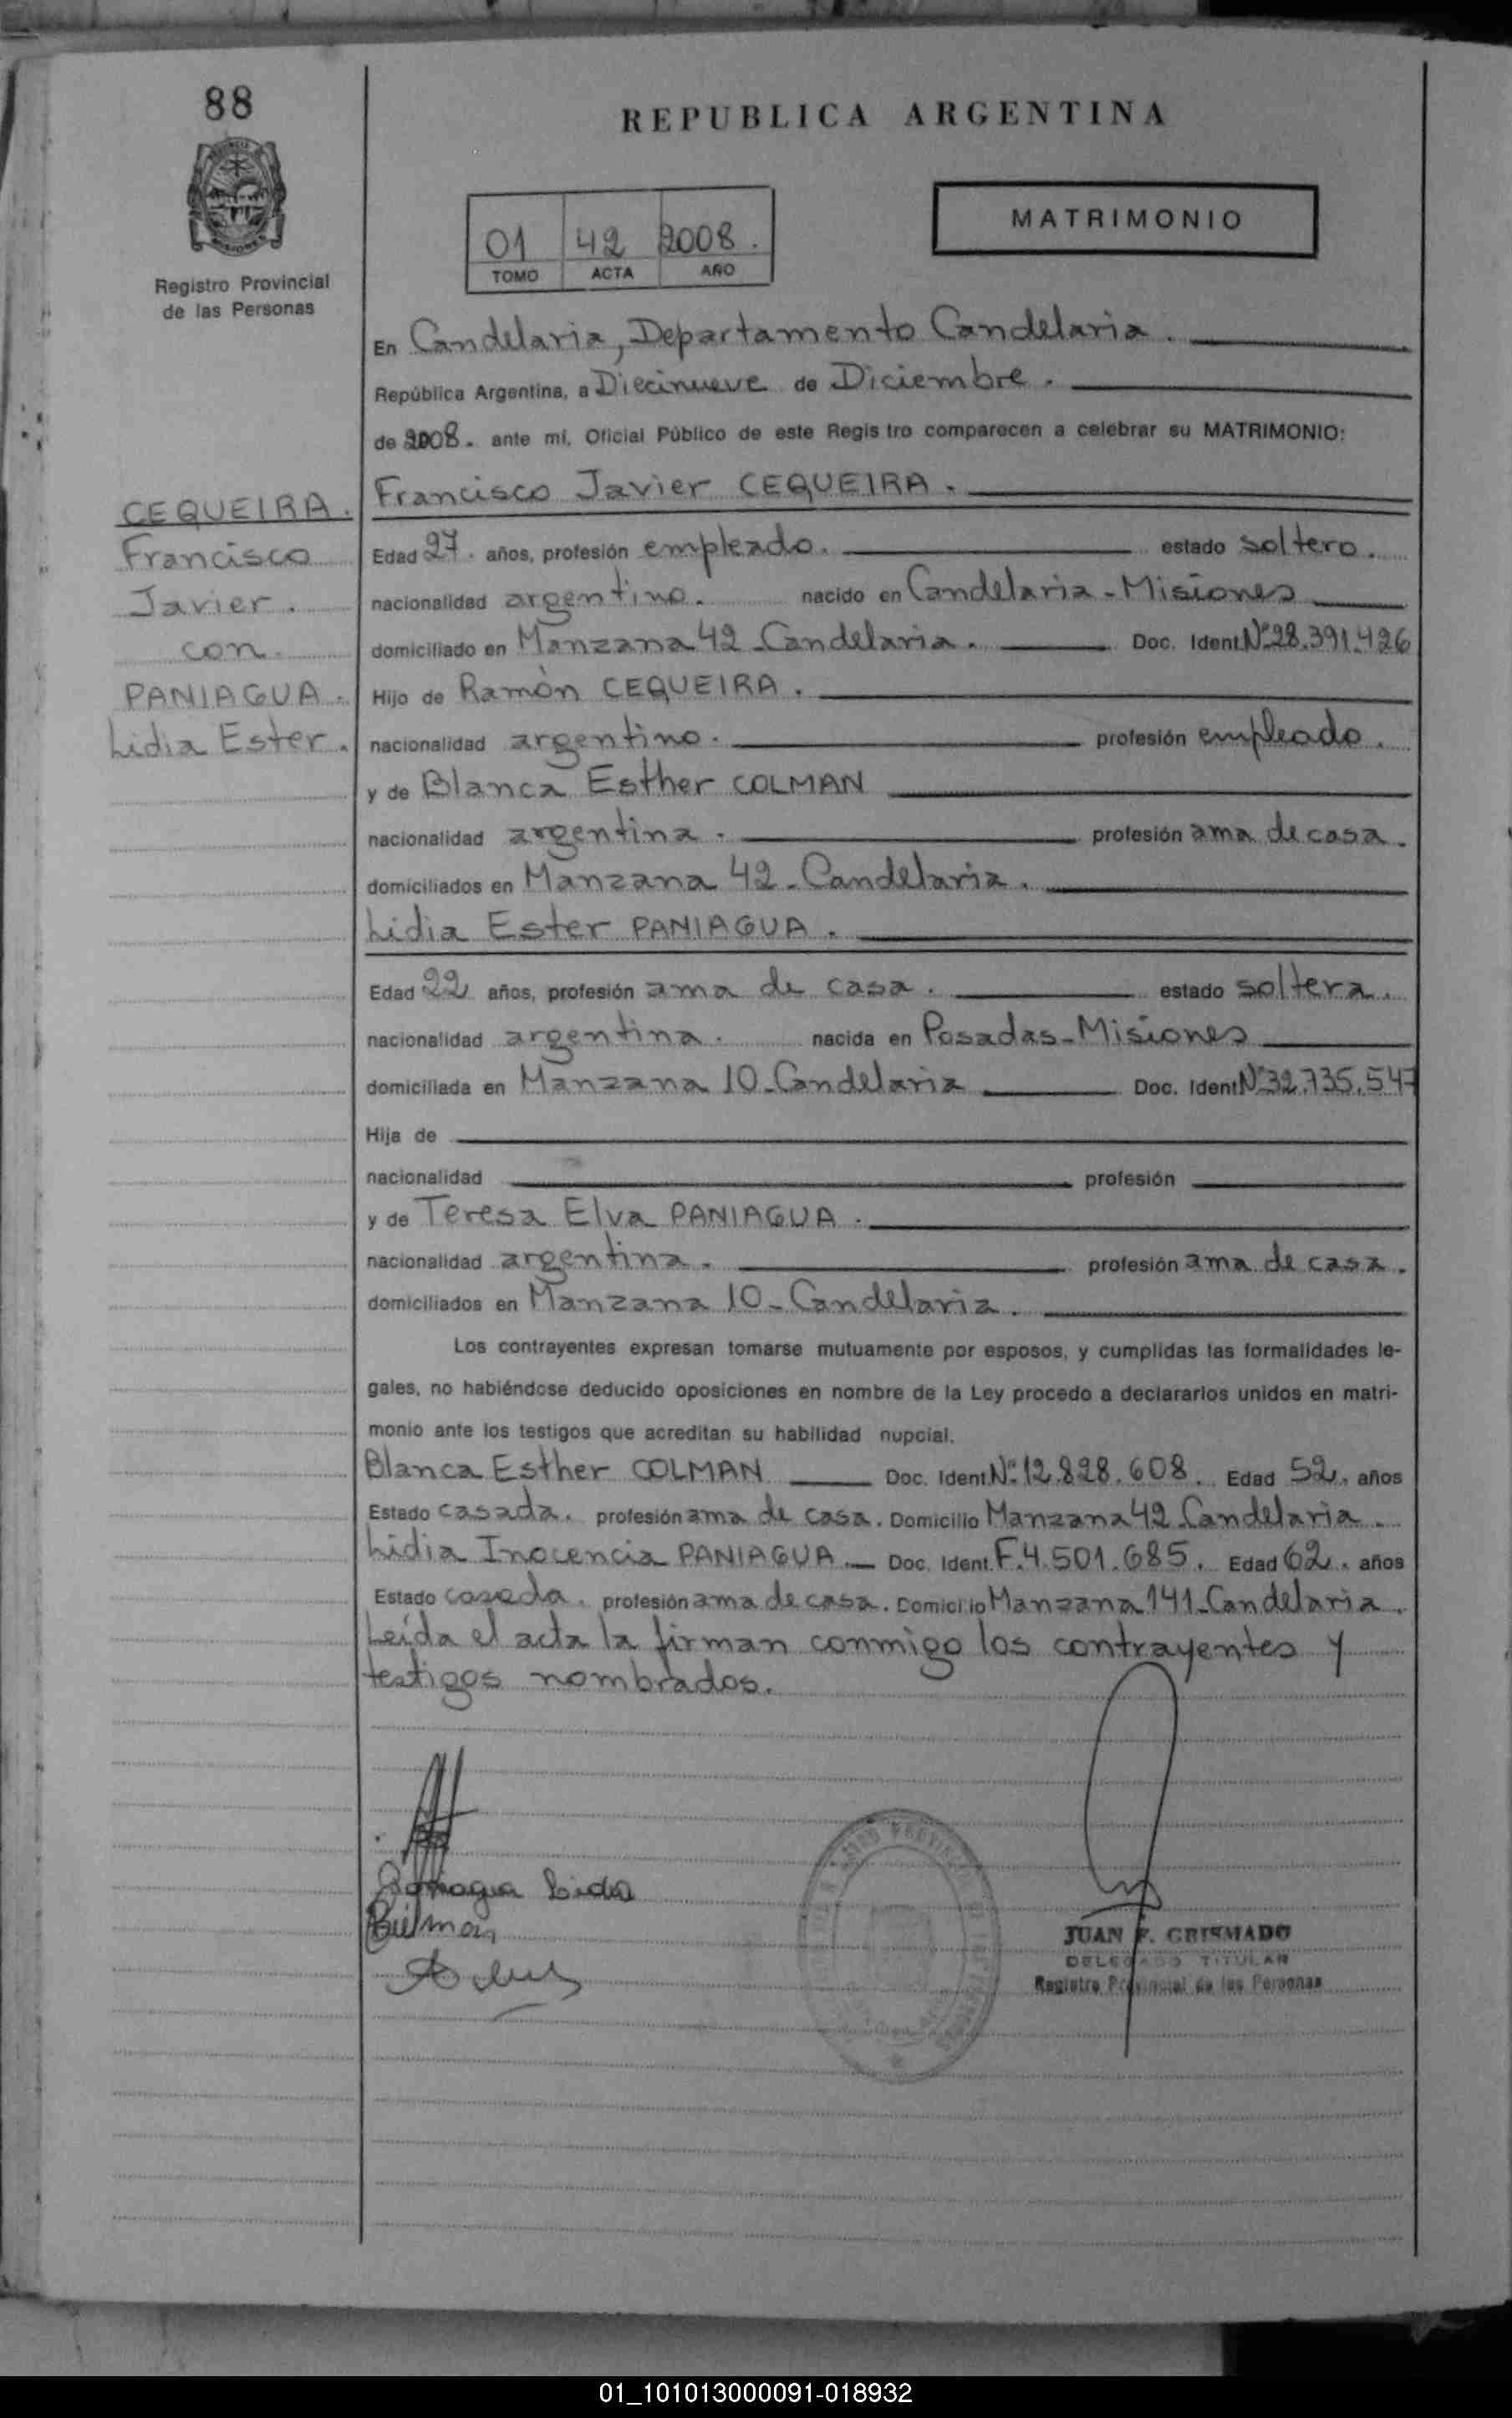 88
REPUBLICA ARGENTINA
MATRIMONIO
01 42 2008.
TOMO ACTA AÑO
Registro Provincial
de las Personas
En Candelaria, Departamento Candelaria.
República Argentina, a Diecinueve de Diciembre.
de 2008. ante mí, Oficial Público de este Regis tro comparecen a celebrar su MATRIMONIO:
Francisco Javier CEQUEIRA.
CEQUEIRA.
Francisco
Javier.
con.
PANIAGUA.
Lidia Ester.
Edad 27. años, profesión empleado. estado soltero.
nacionalidad argentino. nacido en Candelaria-Misiones
domiciliado en Manzana 42-Candelaria. Doc. Ident. Nº28.391.426
Hijo de Ramón CEQUEIRA.
nacionalidad argentino. profesión empleado.
y de Blanca Esther COLMAN
nacionalidad argentina. profesión ama de casa.
domiciliados en Manzana 42-Candelaria.
Lidia Ester PANIAGUA.
Edad 22 años, profesión ama de casa. estado soltera.
nacionalidad argentina. nacida en Posadas-Misiones
domiciliada en Manzana 10-Candelaria Doc. Ident. Nº32.735.547
Hija de
nacionalidad profesión
y de Teresa Elva PANIAGUA.
nacionalidad argentina. profesión ama de casa.
domiciliados en Manzana 10-Candelaria.
Los contrayentes expresan tomarse mutuamente por esposos, y cumplidas las formalidades le-
gales, no habiéndose deducido oposiciones en nombre de la Ley procedo a declararlos unidos en matri-
monio ante los testigos que acreditan su habilidad nupcial.
Blanca Esther COLMAN Doc. Ident. Nº12.828.608. Edad 52. años
Estado casada. profesión ama de casa. Domicilio Manzana 42-Candelaria.
Lidia Inocencia PANIAGUA. Doc. Ident. F.4.501.685. Edad 62. años
Estado casada. profesión ama de casa. Domicilio Manzana 141-Candelaria.
Leída el acta la firman conmigo los contrayentes y
testigos nombrados.
JUAN F. GRISMADO
DELEGADO TITULAR
Registro Provincial de las Personas
01_101013000091-018932